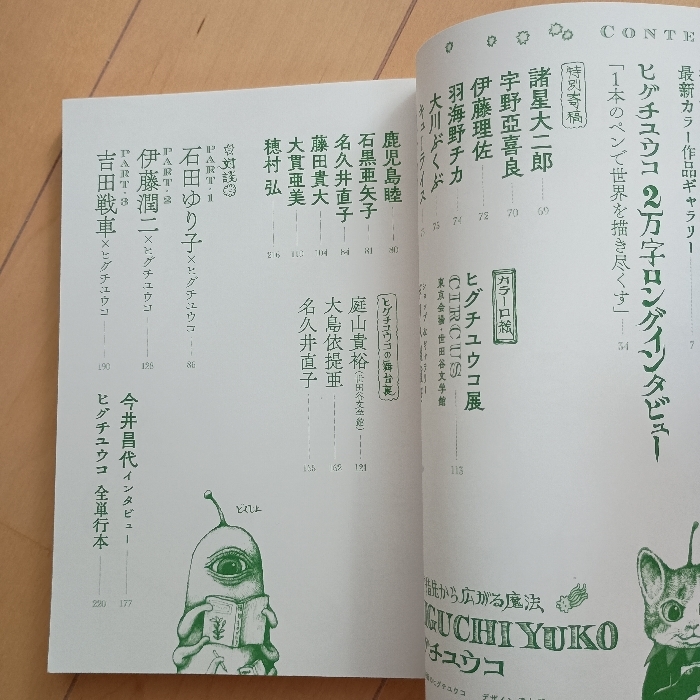 CONTE
最新カラー作品ギャラリー 7
ヒグチユウコ 2万字ロングインタビュー
「1本のペンで世界を描き尽くす」 34
特別寄稿
諸星大二郎 69
宇野亞喜良 70
伊藤理佐 72
羽海野チカ 74
大川ぶくぶ 75
キューライス
カラー口絵
ヒグチユウコ展
CIRCUS 113
東京会場・世田谷文学館
指先から広がる魔法
GUCHI YUKO
グチユウコ
鹿児島睦 80
石黒亜矢子 81
名久井直子 84
藤田貴大 104
大貫亜美
穂村弘
ヒグチユウコの舞台裏
庭山貴裕(世田谷文学館) 121
大島依提亜
名久井直子
対談
PART・1
石田ゆり子×ヒグチユウコ 86
PART・2
伊藤潤二×ヒグチユウコ 128
PART・3
吉田戦車×ヒグチユウコ 190
今井昌代インタビュー 177
ヒグチユウコ 全単行本 220
どくしょ